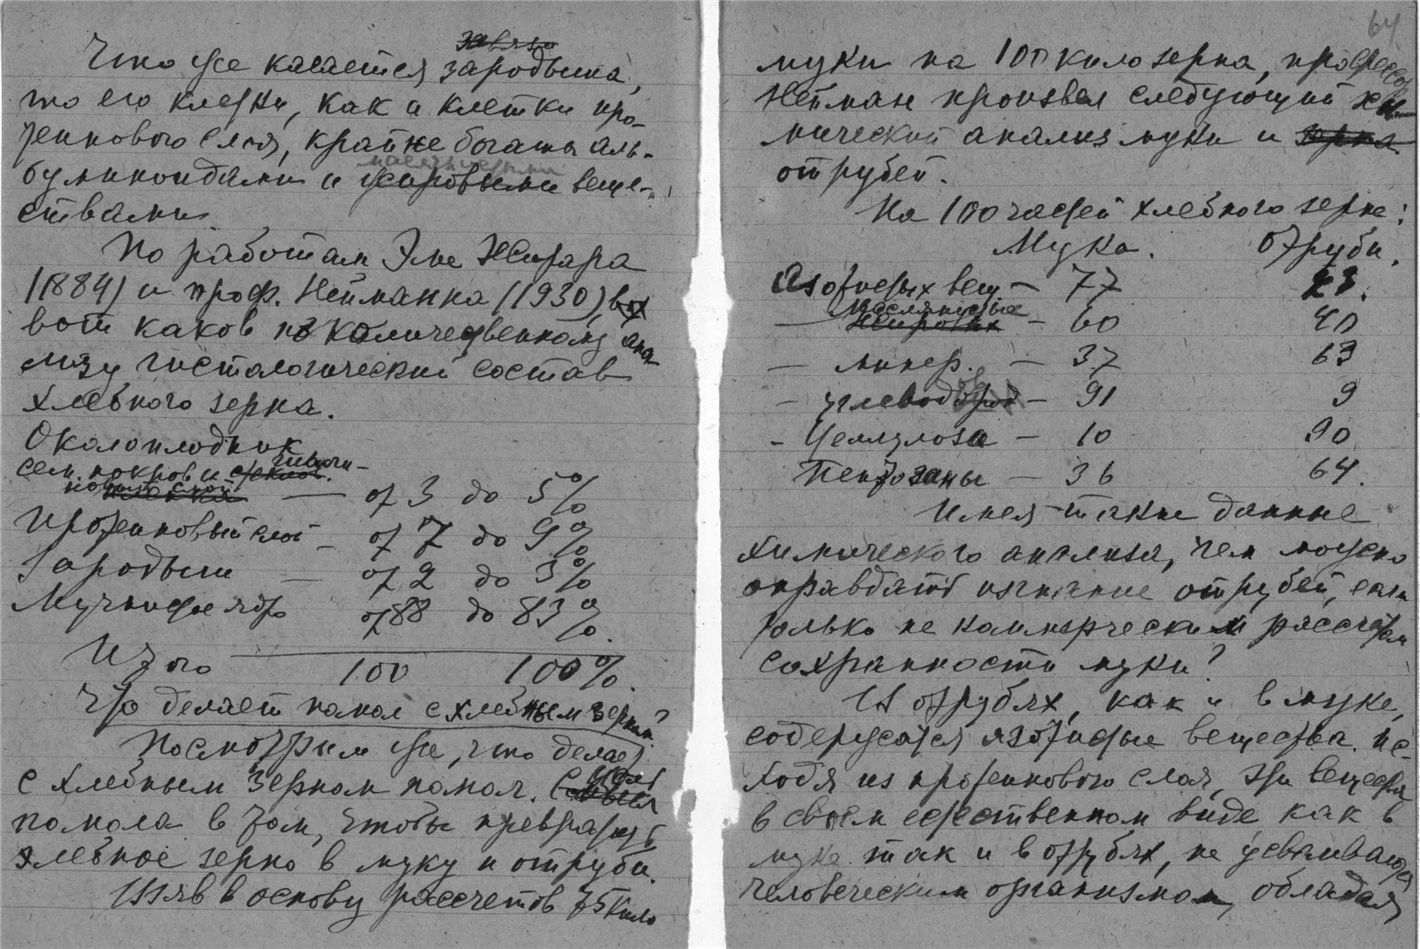 Что же касается зародыша,
то его клетки, как и клетки про-
теинового слоя, крайне богаты аль-
буминоидами и маслянистыми веще-
ствами.
По работам Эме Жирара
(1884) и проф. Нейманна (1930),
вот каков по количественному ана-
лизу гистологический состав
хлебного зерна.
Околоплодник
сем. покров и
слой — от 3 до 5%
Протеиновый слой — от 7 до 9%
Зародыш — от 2 до 3%
Мучнистое ядро от 88 до 83%.
Итого 100 100%.
Что делает помол с хлебным зерном?
Посмотрим же, что делает
с хлебным зерном помол. Цель
помола в том, чтобы превратить
хлебное зерно в муку и отруби.
Взяв в основу рассчетов 75 кило
64
муки на 100 кило зерна, професор
Нейман произвел следующий хи-
мический анализ муки и зерна
отрубей.
На 100 частей хлебного зерна:
Мука. Отруби.
Азотистых вещ — 77 23.
— Маслянистые — 60 40
— минер. — 37 63
— углеводов — 91 9
- Целлулоза — 10 90
Пентозаны — 36 64.
Имея такие данные
химического анализа, чем можно
оправдать изгнание отрубей, если
только не коммерческим рассчетом
сохранности муки?
В отрубях, как и в муке,
содержатся азотистые вещества. Ис-
ходя из протеинового слоя, эти вещества
в своем естественном виде как в
муке так и в отрубях, не усваиваются
человеческим организмом, обладая